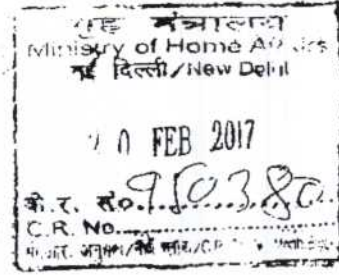 गृह मंत्रालय
Ministry of Home Affairs
नई दिल्ली/New Delhi
20 FEB 2017
के.र. सं० 950380
C.R. No.